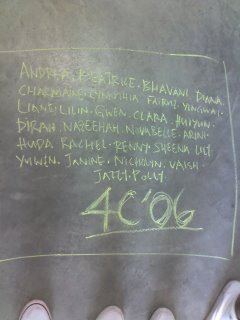 ANDREA. BEATRICE. BHAVANI. DIANA.
CHARMAINE. CYNTHIA. FAIRUZ. YINGWAI.
LILIN. GWEN. CLARA. HUIYUN.
DIRAH. NAZEEHAH. NOVABELLE. ARINI.
HUDA. RACHEL. RENNY. SHEENA. LILY.
YUWEN. JANINE. NICHOLYN. VAISH.
JAZZY. POLLY.
4C'06